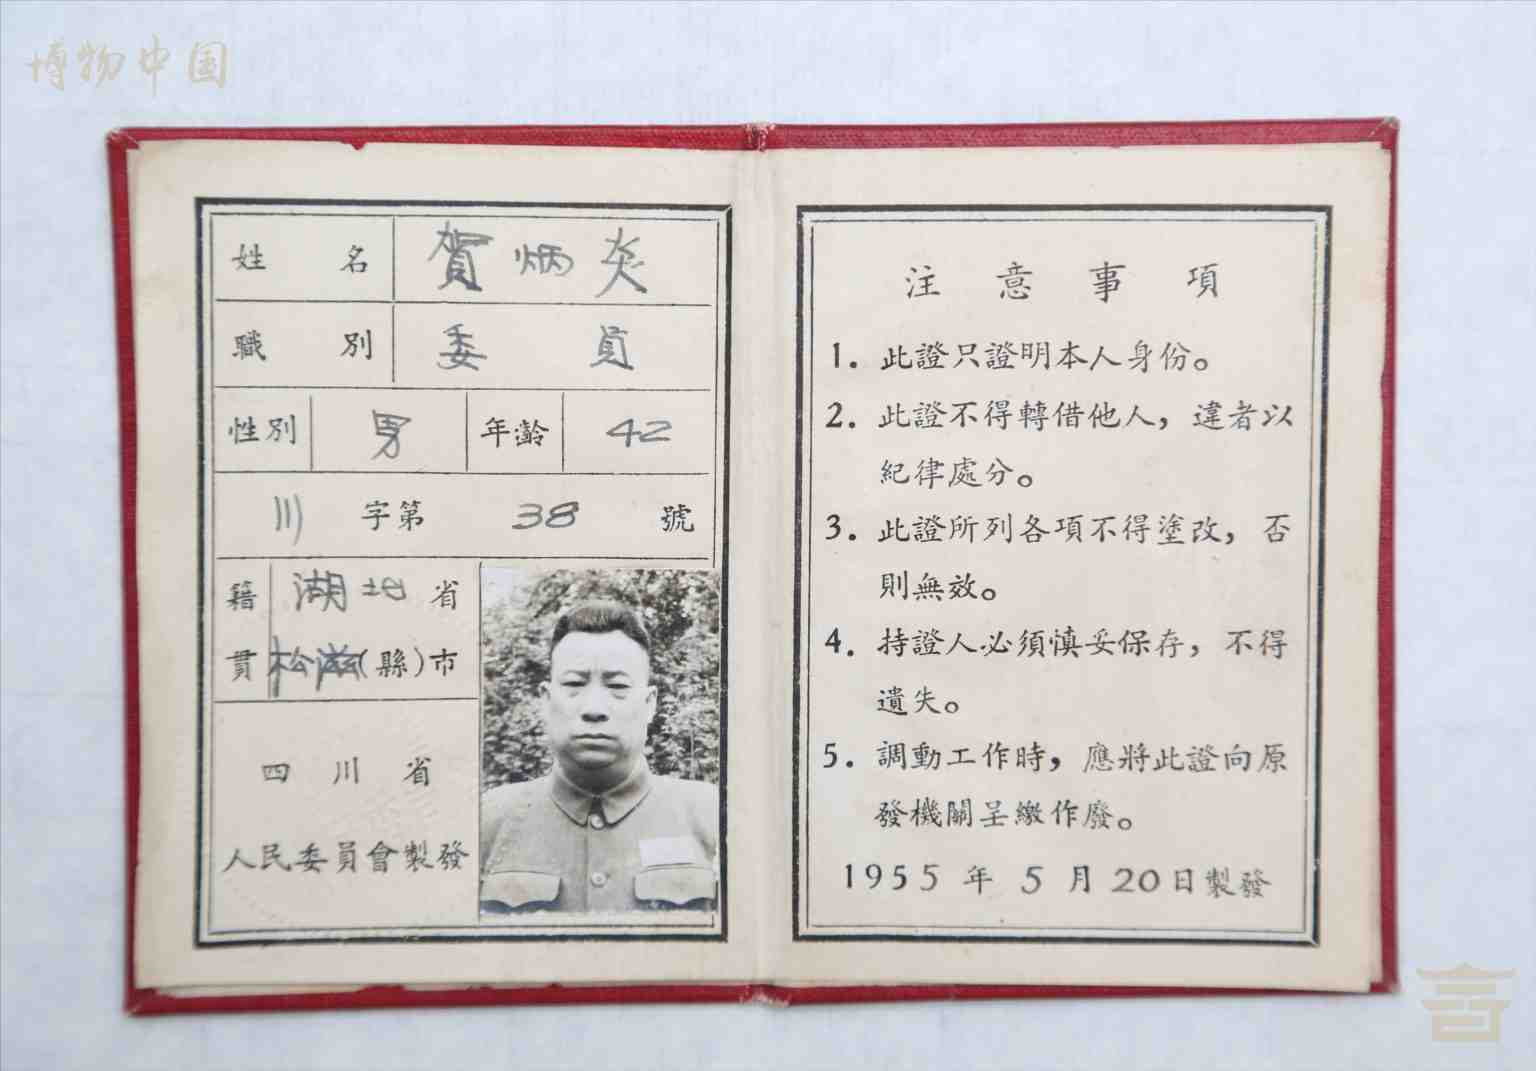 博物中国
姓名 賀炳炎
職別 委員
性別 男 年齡 42
川 字第 38 號
籍貫 湖北省
松滋(縣)市
四川省
人民委員會製發
注意事項
1. 此證只證明本人身份。
2. 此證不得轉借他人，違者以
紀律處分。
3. 此證所列各項不得塗改，否
則無效。
4. 持證人必須慎妥保存，不得
遺失。
5. 調動工作時，應將此證向原
發機關呈繳作廢。
1955年5月20日製發